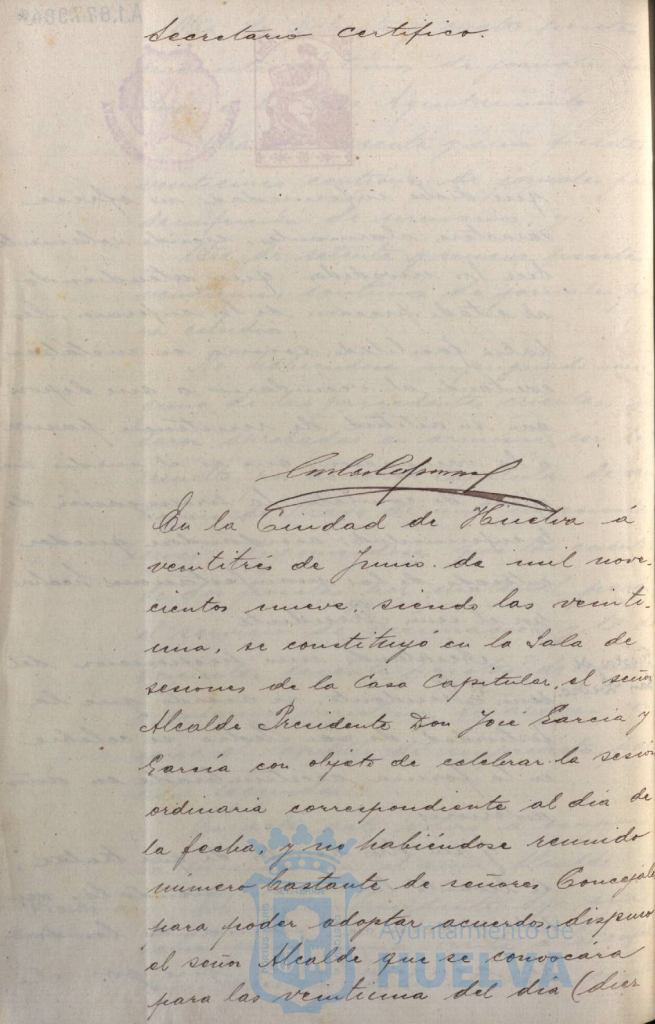 Secretario certifico.
En la Ciudad de Huelva á
veintitrés de Junio de mil nove-
cientos nueve, siendo las veinti-
una, se constituyó en la Sala de
sesiones de la Casa Capitular, el señor
Alcalde Presidente Don José García y
García con objeto de celebrar la sesión
ordinaria correspondiente al dia de
la fecha, y no habiéndose reunido
número bastante de señores Concejales
para poder adoptar acuerdos, dispuso
el señor Alcalde que se convocára
para las veintiuna del día (diez
Ayuntamiento de
HUELVA